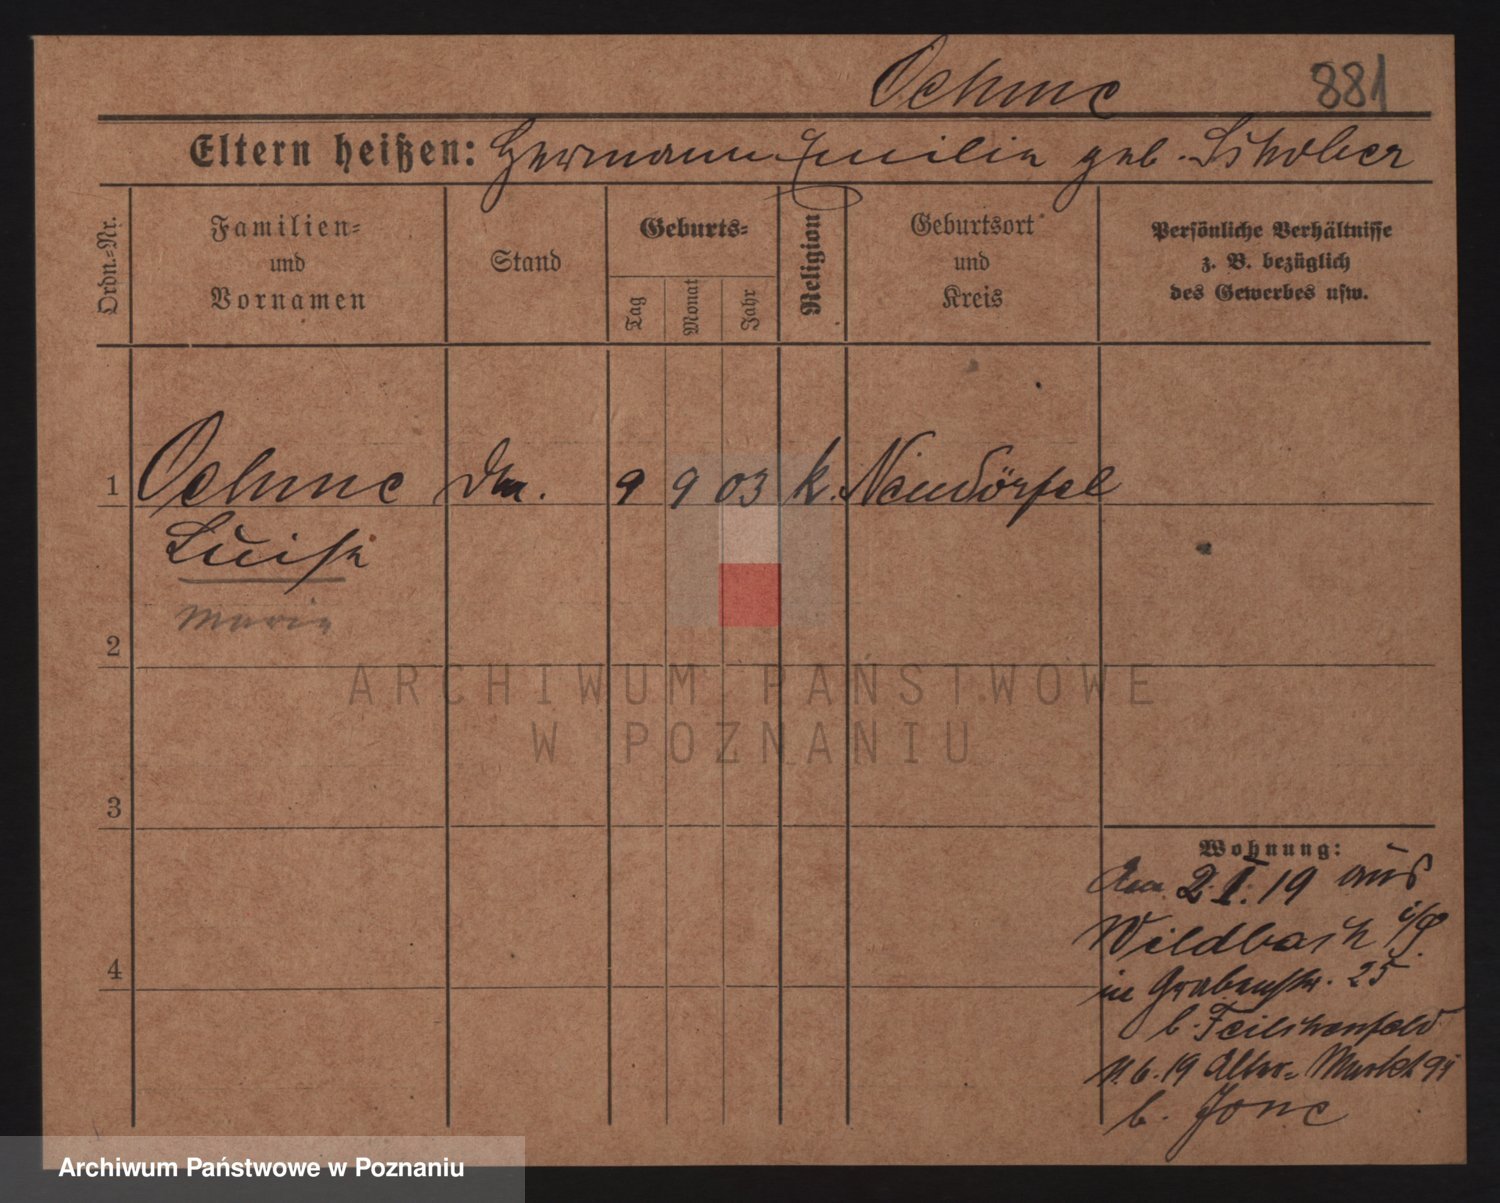 Oehme 881
Eltern heißen: Hermann Emilie geb. Schober
Ordn.-Nr.
Familien-
und
Vornamen
Stand
Geburts-
Tag
Monat
Jahr
Religion
Geburtsort
und
Kreis
Persönliche Verhältnisse
z. B. bezüglich
des Gewerbes usw.
1 Oehme 9 9 03 k. Neudörfel
Luise
Marie
2
3
4
Wohnung:
Am 2. I. 19 aus
Wildbach
in Grabenstr. 25
b.
11.6.19 Alter-Markt
b.
ARCHIWUM PAŃSTWOWE
W POZNANIU
Archiwum Państwowe w Poznaniu